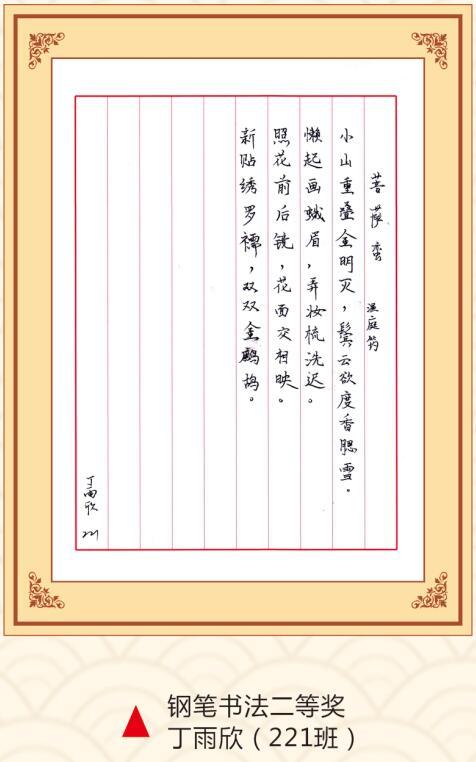 菩萨蛮 温庭筠
小山重叠金明灭，鬓云欲度香腮雪。
懒起画蛾眉，弄妆梳洗迟。
照花前后镜，花面交相映。
新贴绣罗襦，双双金鹧鸪。
丁雨欣 221
钢笔书法二等奖
丁雨欣（221班）